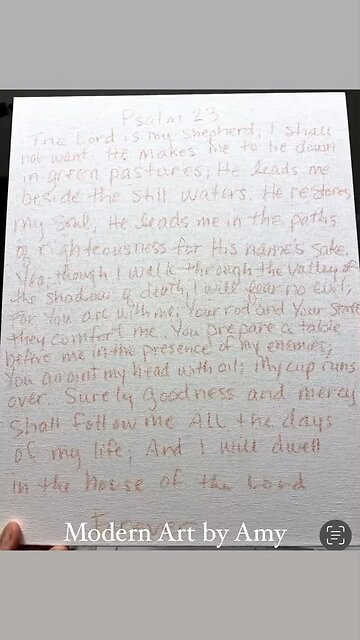 Psalm 23
The Lord is my shepherd, I shall
not want. He makes me to lie down
in green pastures; He leads me
beside the still waters. He restores
my soul, He leads me in the paths
of righteousness for His name's sake.
Yea, though I walk through the Valley of
the shadow of death, I will fear no evil;
For You are with me; Your rod and Your staff
they comfort me. You prepare a table
before me in the presence of my enemies;
You anoint my head with oil; My cup runs
over. Surely goodness and mercy
Shall follow me All the days
of my life; And I will dwell
in the house of the Lord
Forever
Modern Art by Amy